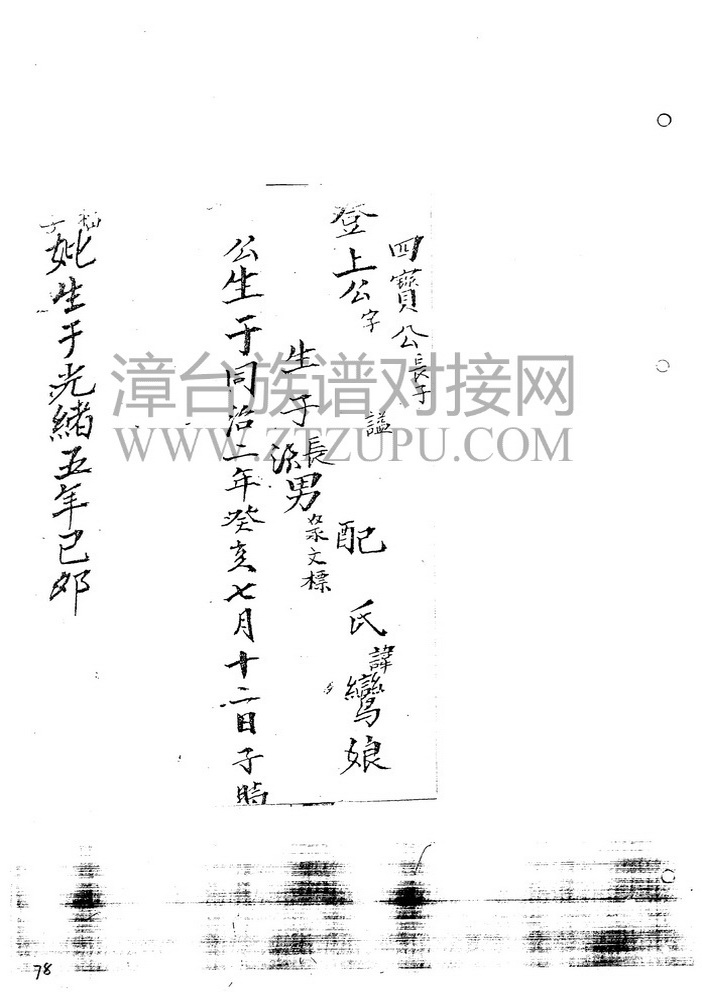 四寶公長子
登上公字 諡 配 氏諱鸞娘
生子長男 文標
公生于同治二年癸亥七月十二日子時
妣生于光緒五年己卯
漳台族谱对接网
WWW.ZTZUPU.COM
78